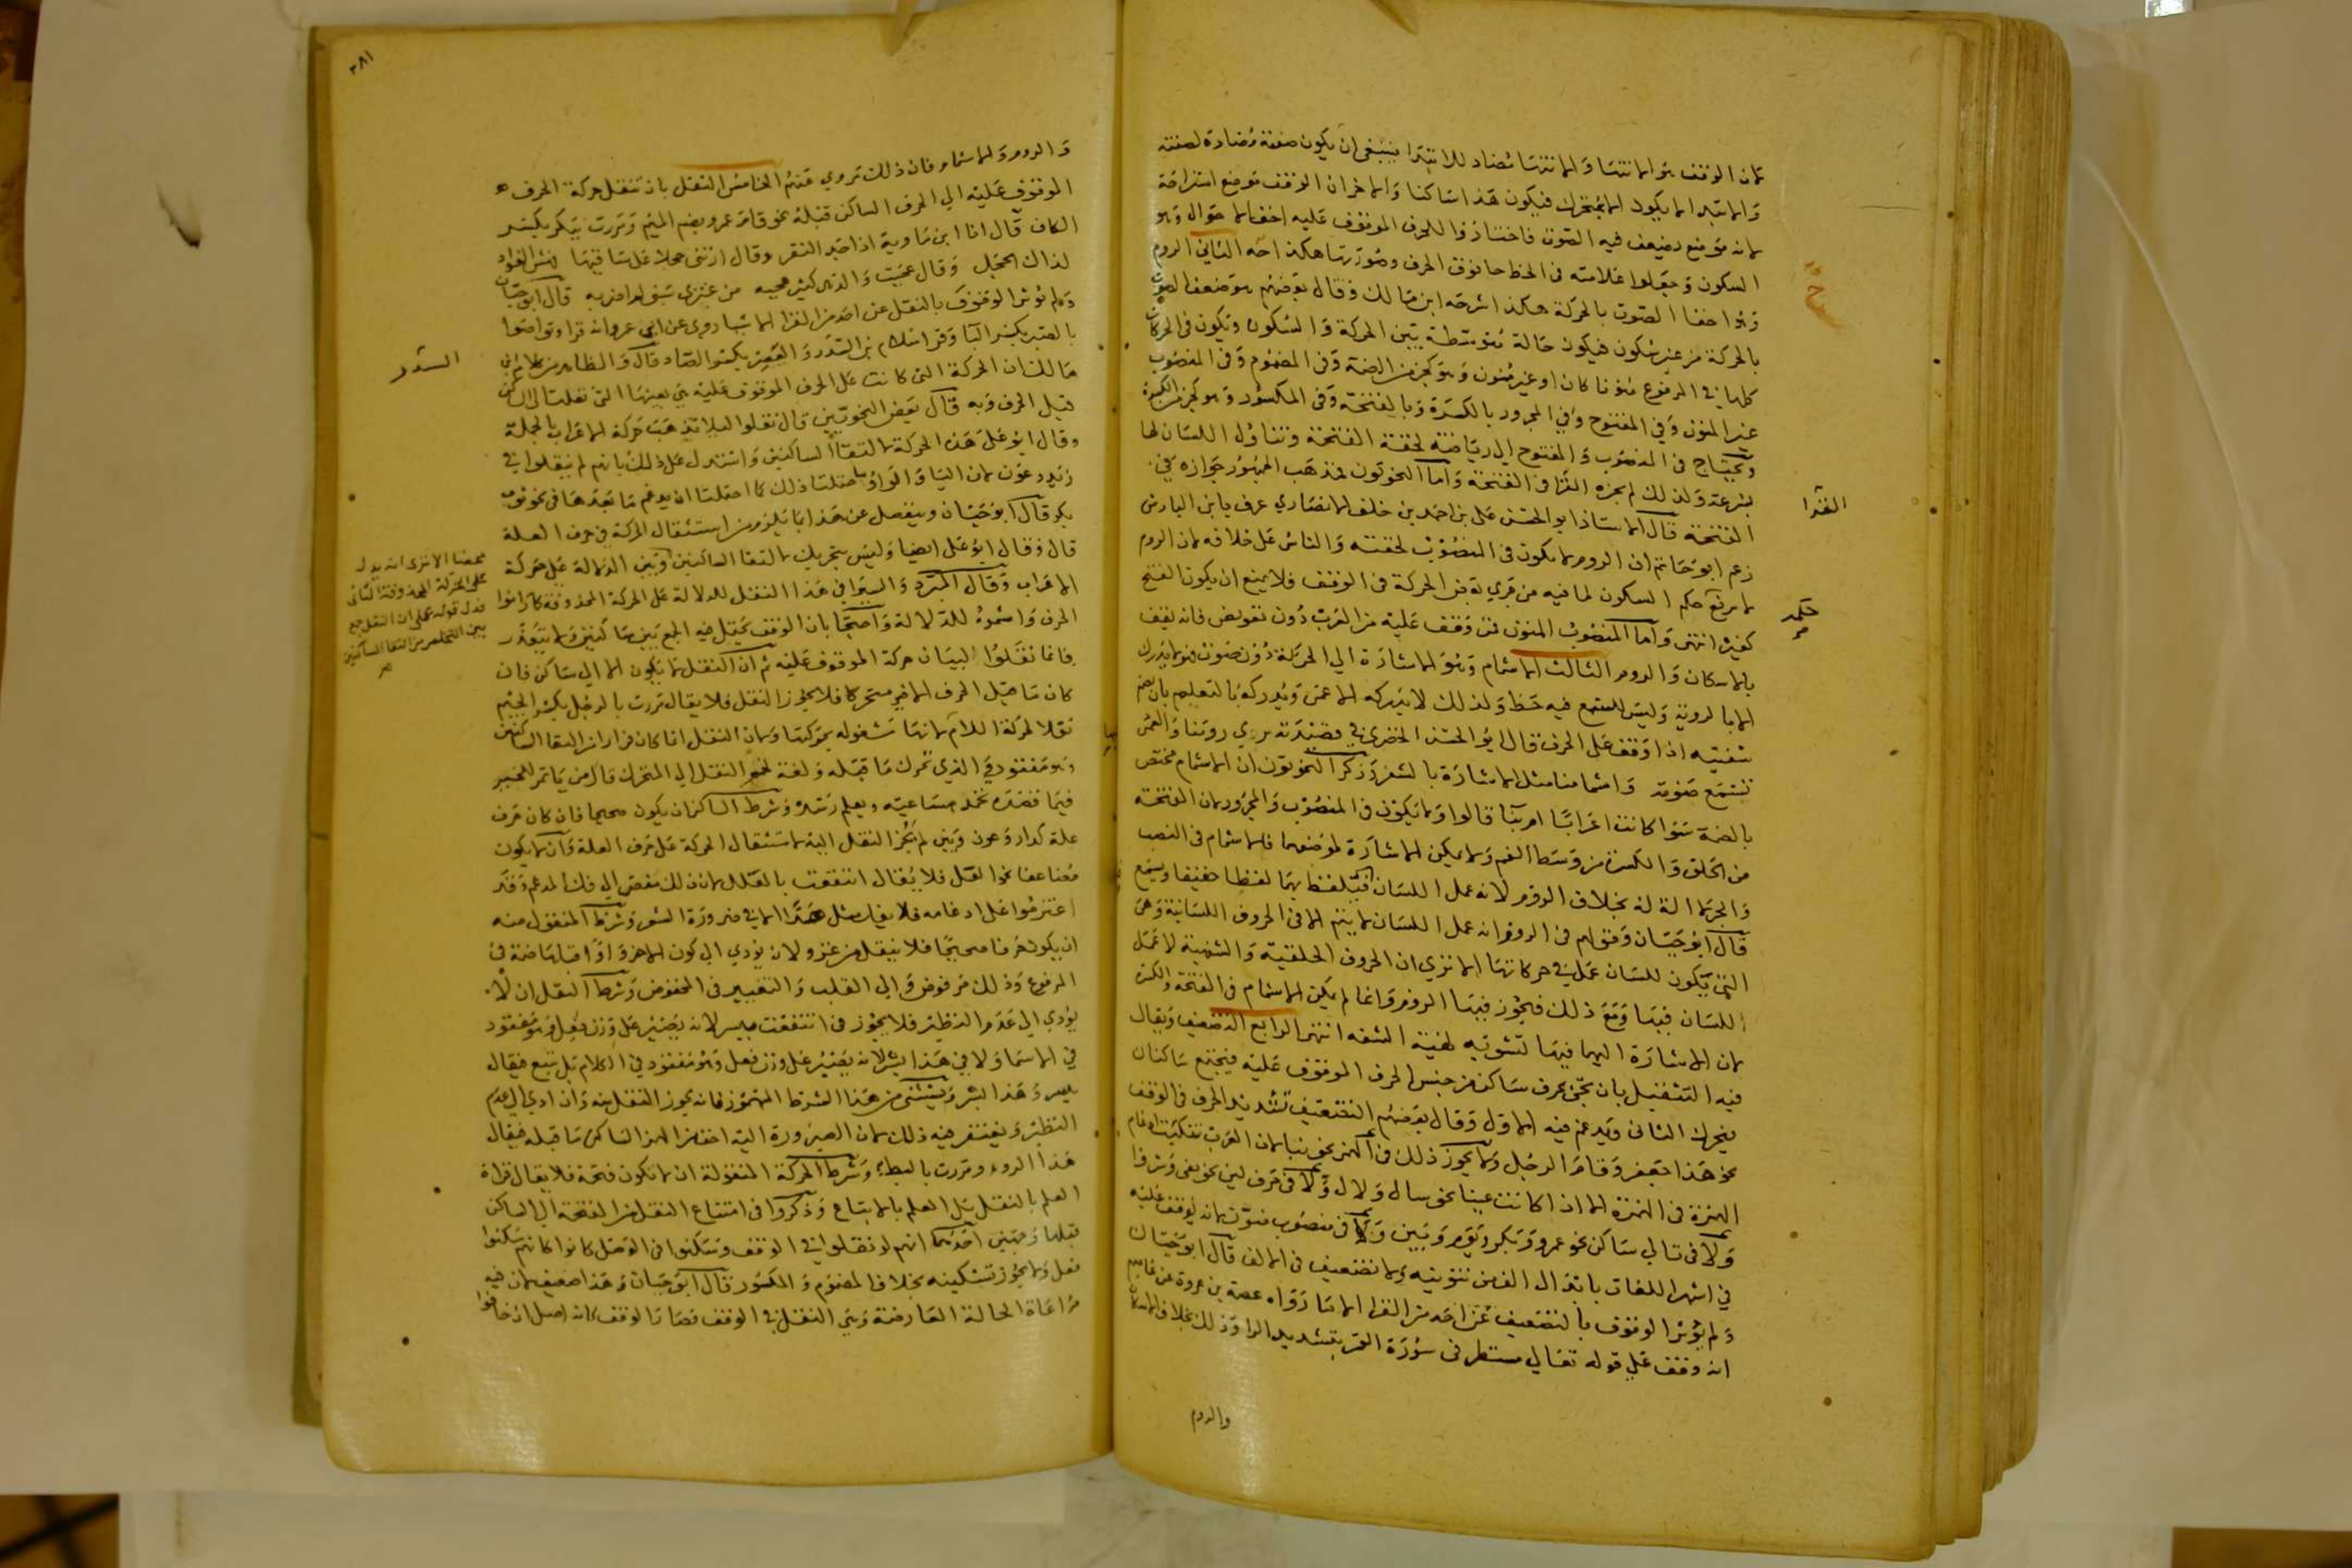 لان الوقف هو الانتها والانتها مضاد للابتدا فينبغي ان يكون صفته مضادة لصفته
والابتدا لا يكون الا بمتحرك فيكون هذا ساكنا والاخر ان الوقف موضع استراحة
لانه موضع يضعف فيه الصوت فاختاروا للحرف الموقوف عليه اخف الاحوال وهو
السكون وجعلوا علامته في الخط حا فوق الحرف وصورتها هكذا الثاني الروم
وهو اخفا الصوت بالحركة هكذا شرحه ابن مالك وقال بعضهم هو تضعيف الصوت
بالحركة من غير سكون فيكون حالة متوسطة بين الحركة والسكون وتكون في الحركات
كلها في المرفوع منونا كان او غير منون وهو كجزء من الضمة وفي المضموم وفي المنصوب
غير المنون وفي المفتوح وفي المجرور بالكسرة وبالفتحة وفي المكسور وهو كجزء من الكسرة
ويحتاج في المنصوب والمفتوح الى رياضة لخفة الفتحة وتناول اللسان لها
بسرعة ولذلك لم يجزه الفرا في الفتحة واما النحويون فمذهب الجمهور جوازه في
الفتحة قال الاستاذ ابو الحسن علي بن احمد بن خلف الانصاري عرف بابن الباذش
زعم ابو حاتم ان الروم لا يكون في المنصوب لخفته والناس على خلافه لان الروم
لا يرفع حكم السكون لما فيه من جري بعض الحركة في الوقف فلا يمنع ان يكون الفتح
كغيره انتهى واما المنصوب المنون فمن وقف عليه من العرب دون تعويض فانه يقف
بالاسكان والروم الثالث الاشمام وهو الاشارة الى الحركة دون صوت
الا بالروية وليس للسمع فيه حظ ولذلك لا يدركه الاعمى ويدركه بالتعليم بان يضم
شفتيه اذا وقف على الحرف قال ابو الحسن الحصري في قصيدته يرى رومنا والعمى
تسمع صوته واشمامنا مثل الاشارة بالشعر وذكر النحويون ان الاشمام مختص
بالضمة سوا كانت اعرابا ام بنا قالوا ولا يكون في المنصوب والمجرور لان الفتحة
من الحلق والكسرة من وسط الفم ولا يمكن الاشارة لموضعهما فالاشمام في النصب
والجر لا الة له بخلاف الروم لانه عمل اللسان فيلفظ بهما لفظا خفيفا ويسمع
قال ابو حيان وقولهم في الروم انه عمل اللسان لا يتم الا في الحروف اللسانية وهي
التي يكون للسان عمل في حركاتها الا ترى ان الحروف الحلقية والشفهية لا عمل
للسان فيها ومع ذلك فيجوز فيها الروم وانما لم يكن الاشمام في الفتحة والكسرة
لان الاشارة اليهما فيها تشويه لهيئة الشفة انتهى الرابع التضعيف ويقال
فيه التثقيل بان تجي بحرف ساكن من جنس الحرف الموقوف عليه فيجتمع ساكنان
فيحرك الثاني ويدغم فيه الاول وقال بعضهم التضعيف تشديد الحرف في الوقف
نحو هذا جعفر وقام الرجل ولا يجوز ذلك في الهمز نحو بنا لان العرب تنكبت ادغام
الهمزة في الهمزة الا اذا كانت عينا نحو سال ولال ولا في حرف لين نحو يغزو
ولا في تالي ساكن نحو عمرو وبكر ويوم وبين ولا في منصوب منون لانه يوقف عليه
في اشهر اللغات بابدال الف من تنوينه ولا تضعيف في الالف قال ابو حيان
ولم يؤثر الوقوف بالتضعيف عن احد من القرا الا ما رواه عصمة بن عروة عن عاصم
انه وقف على قوله تعالى مستطر في سورة القمر بتشديد الرا وذلك بخلاف الاسكان
والروم
الفرا
حكمه
٣٨١
والروم والاشمام فان ذلك مروي عنهم الخامس النقل بان تنقل حركة الحرف
الموقوف عليه الي الحرف الساكن قبله نحو قام عمرو بضم الميم ومررت ببكر بكسر
الكاف قال انا ابن ماوية اذا جد النقر وقال ارتني حجلا على ساقها
لذاك الحجل وقال عجبت والدهر كثير عجبه من عنزي سبني لم اضربه قال ابو حيان
ولم يؤثر الوقوف بالنقل عن احد من القرا الا شيا روي عن ابي عمرو انه قرا وتواصوا
بالصبر بكسر البا وقرا سلام بن المنذر والعصر بكسر الصاد قال والظاهر من كلام ابن
مالك ان الحركة التي كانت على الحرف الموقوف عليه هي بعينها التي نقلت الى الساكن
قبل الحرف وبه قال بعض النحويين قال نقلوا ليلا تذهب حركة الاعراب بالجملة
وقال ابو علي هذه الحركة لالتقا الساكنين واستدل على ذلك بانهم لم ينقلوا في
زيد وعون لان اليا والواو احتملتا ذلك كما احتملتا ان يدغم ما بعدهما في نحو ثوب
بكر قال ابو حيان وينفصل عن هذا بما يلزم من استثقال الحركة في حرف العلة
قال وقال ابو علي ايضا وليس بتحريك لالتقا الساكنين وبين الدلالة على حركة
الاعراب وقال المبرد والسيرافي هذا النقل للدلالة على الحركة المحذوفة كما راموا
الحرف واشموه للدلالة واحتجا بان الوقف يحتمل فيه الجمع بين ساكنين ولا يتعذر
فانما نقلوا لبيان حركة الموقوف عليه ثم ان النقل لا يكون الا الى ساكن فان
كان ما قبل الحرف الاخير متحركا فلا يجوز النقل فلا يقال مررت بالرجل بكسر الجيم
نقلا لحركة اللام لانها مشغولة بحركتها ولان النقل انما كان فرارا من التقا الساكنين
وهو مفقود في الذي تحرك ما قبله ولغة لخم النقل الى المتحرك قال من ياتمر للخير
فيما قصده تحمد مساعيه ويعلم رشده وشرط الساكن ان يكون صحيحا فان كان حرف
علة كدار وعون وبين لم يجز النقل اليه لاستثقال الحركة على حرف العلة وان لا يكون
مضاعفا نحو العل فلا يقال انتفعت بالعلل لان ذلك مفض الى فك المدغم وقد
اعتزموا على ادغامه فلا يفك مثل هذا الا في ضرورة الشعر وشرط المنقول منه
ان يكون حرفا صحيحا فلا ينقل من غزو لانه يؤدي الى كون الاخر واوا قبلها ضمة في
المرفوع وذلك مرفوض والى القلب والتغيير في المخفوض وشرط النقل ان لا
يؤدي الى عدم النظير فلا يجوز في انتفعت ببسر لانه يصير على وزن فعل وهو مفقود
في الاسما ولا في هذا بشر لانه يصير على وزن فعل وهو مفقود في الكلام بل تتبع فيقال
ببسر وهذا البشر ويستثنى من هذا الشرط المهموز فانه يجوز النقل منه وان ادى الى عدم
النظير ويغتفر فيه ذلك لان الصيرورة اليه اخف من الهمز الساكن ما قبله فيقال
هذا الردء ومررت بالبطء وشرط الحركة المنقولة ان لا تكون فتحة فلا يقال قراة
العلم بالنقل بل العلم بالاتباع وذكروا في امتناع النقل من الفتحة الى الساكن
قبلها وجهين احدهما انهم لو نقلوا في الوقف وسكنوا في الوصل كانوا كانهم سكنوا
فعل ولا يجوز تسكينه بخلاف المضموم والمكسور قال ابو حيان وهذا ضعيف لان فيه
مراعاة الحالة العارضة وهي النقل في الوقف فصار الوقف كانه اصل اذ خافوا
محضا الا ترى انه يدل
على الحركة المحذوفة الثاني
فدل قوله على ان النقل جمع
بين التخلص من التقا الساكنين